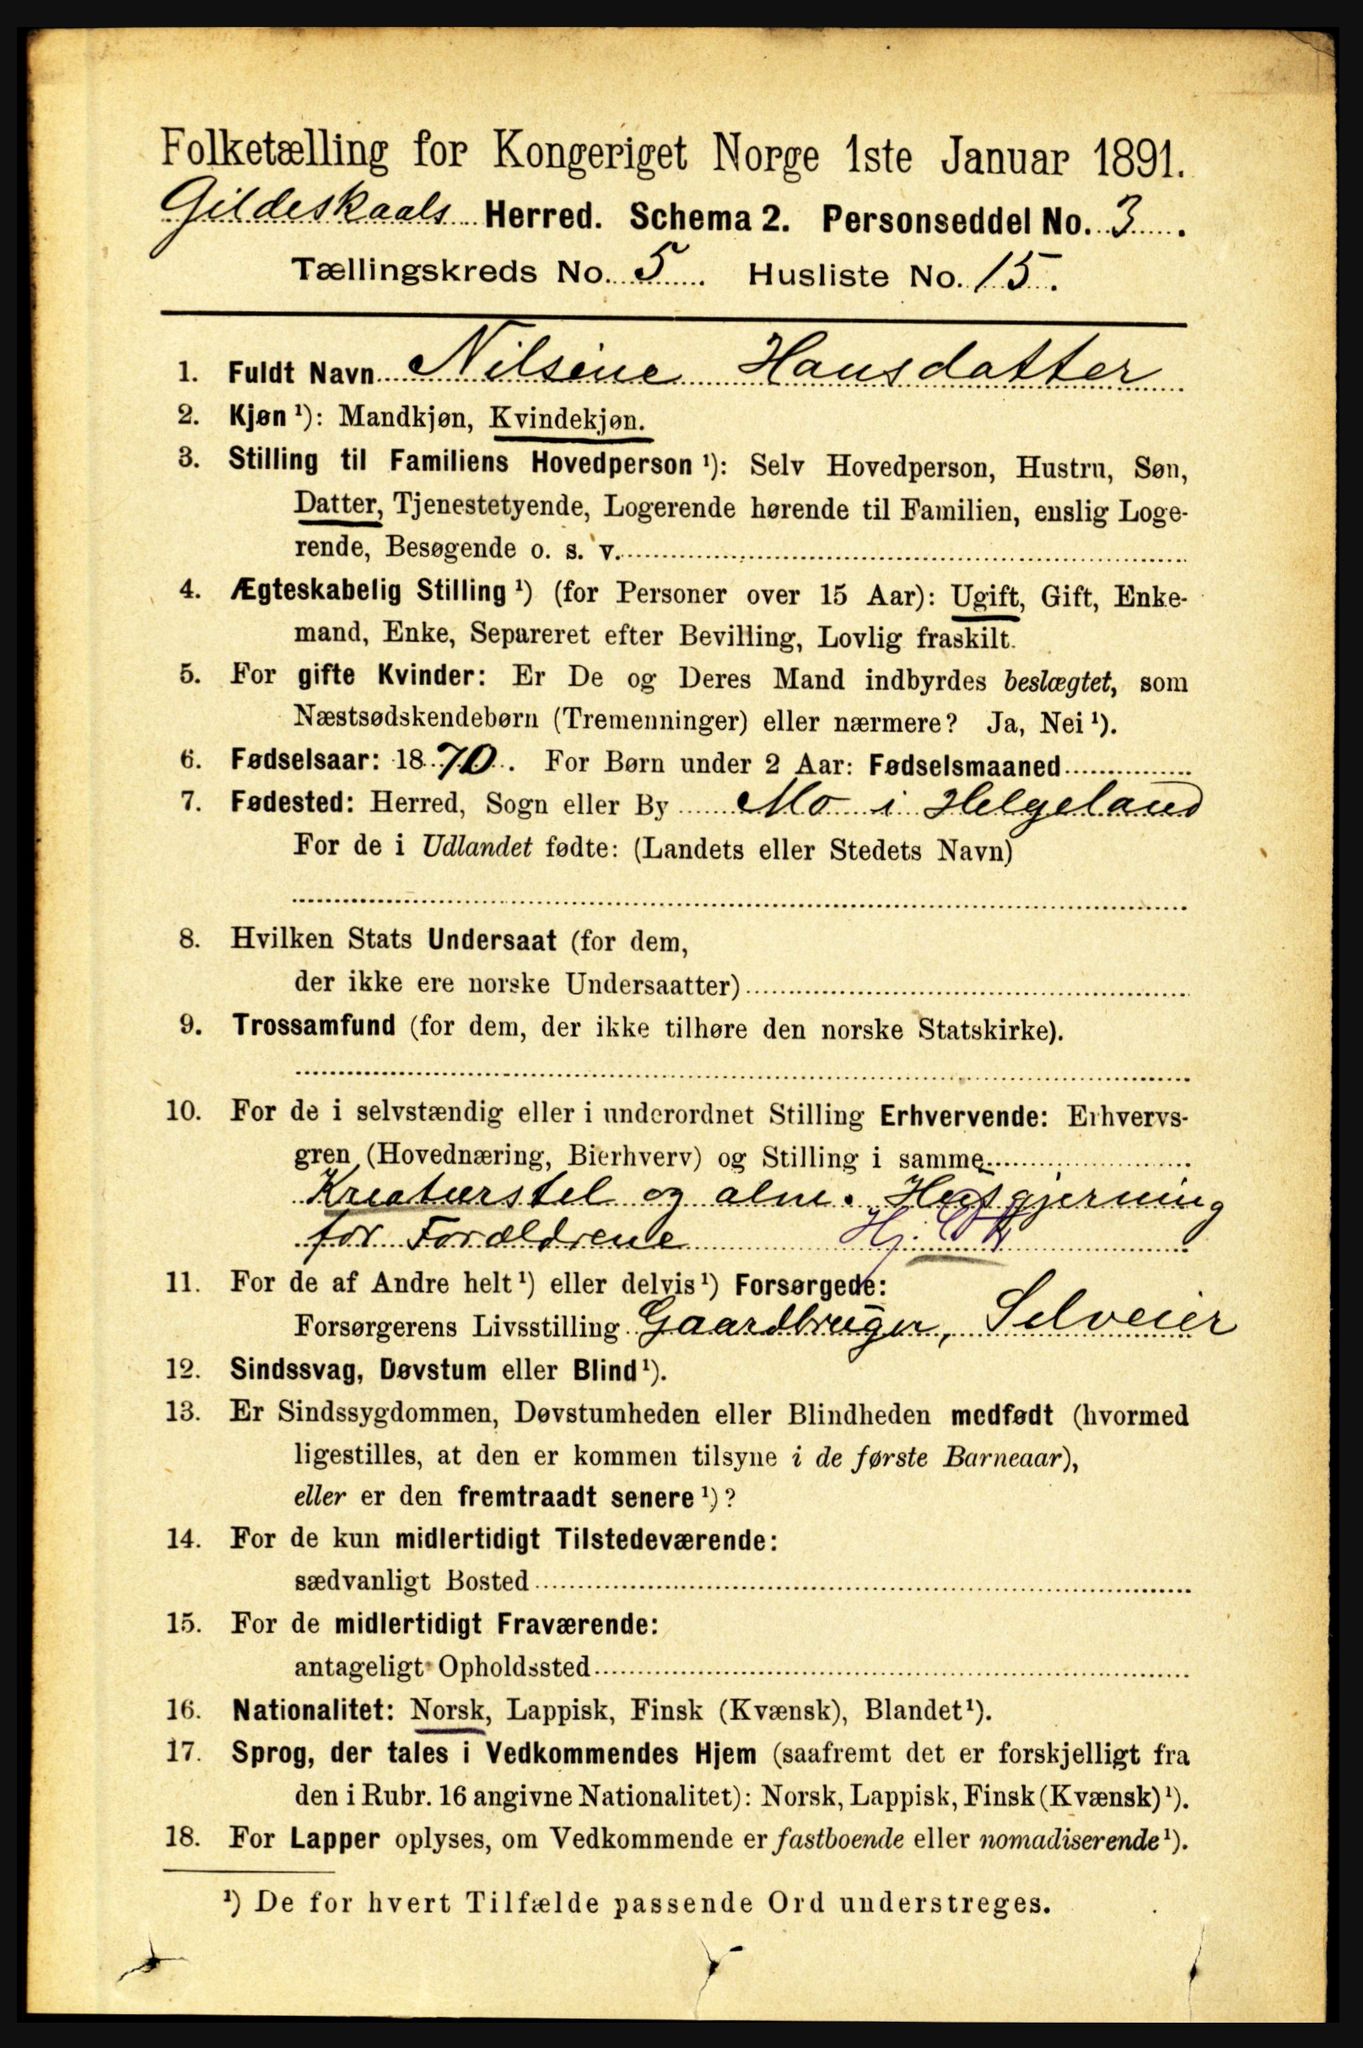 Folketælling for Kongeriget Norge 1ste Januar 1891.
Gildeskaals Herred. Schema 2. Personseddel No. 3.
Tællingskreds No. 5. Husliste No. 15.
1. Fuldt Navn Nilsine Hansdatter
2. Kjøn ¹): Mandkjøn, Kvindekjøn.
3. Stilling til Familiens Hovedperson ¹): Selv Hovedperson, Hustru, Søn,
Datter, Tjenestetyende, Logerende hørende til Familien, enslig Loge-
rende, Besøgende o. s. v.
4. Ægteskabelig Stilling ¹) (for Personer over 15 Aar): Ugift, Gift, Enke-
mand, Enke, Separeret efter Bevilling, Lovlig fraskilt.
5. For gifte Kvinder: Er De og Deres Mand indbyrdes beslægtet, som
Næstsødskendebørn (Tremenninger) eller nærmere? Ja, Nei ¹).
6. Fødselsaar: 1870. For Børn under 2 Aar: Fødselsmaaned
7. Fødested: Herred, Sogn eller By Mo i Helgeland
For de i Udlandet fødte: (Landets eller Stedets Navn)
8. Hvilken Stats Undersaat (for dem,
der ikke ere norske Undersaatter)
9. Trossamfund (for dem, der ikke tilhøre den norske Statskirke).
10. For de i selvstændig eller i underordnet Stilling Erhvervende: Erhvervs-
gren (Hovednæring, Bierhverv) og Stilling i samme
Kreaturstel og alm. Husgjerning
for Forældrene Hj.
11. For de af Andre helt ¹) eller delvis ¹) Forsørgede:
Forsørgerens Livsstilling Gaardbruger, Selveier
12. Sindssvag, Døvstum eller Blind ¹).
13. Er Sindssygdommen, Døvstumheden eller Blindheden medfødt (hvormed
ligestilles, at den er kommen tilsyne i de første Barneaar),
eller er den fremtraadt senere ¹)?
14. For de kun midlertidigt Tilstedeværende:
sædvanligt Bosted
15. For de midlertidigt Fraværende:
antageligt Opholdssted
16. Nationalitet: Norsk, Lappisk, Finsk (Kvænsk), Blandet ¹).
17. Sprog, der tales i Vedkommendes Hjem (saafremt det er forskjelligt fra
den i Rubr. 16 angivne Nationalitet): Norsk, Lappisk, Finsk (Kvænsk) ¹).
18. For Lapper oplyses, om Vedkommende er fastboende eller nomadiserende ¹).
¹) De for hvert Tilfælde passende Ord understreges.